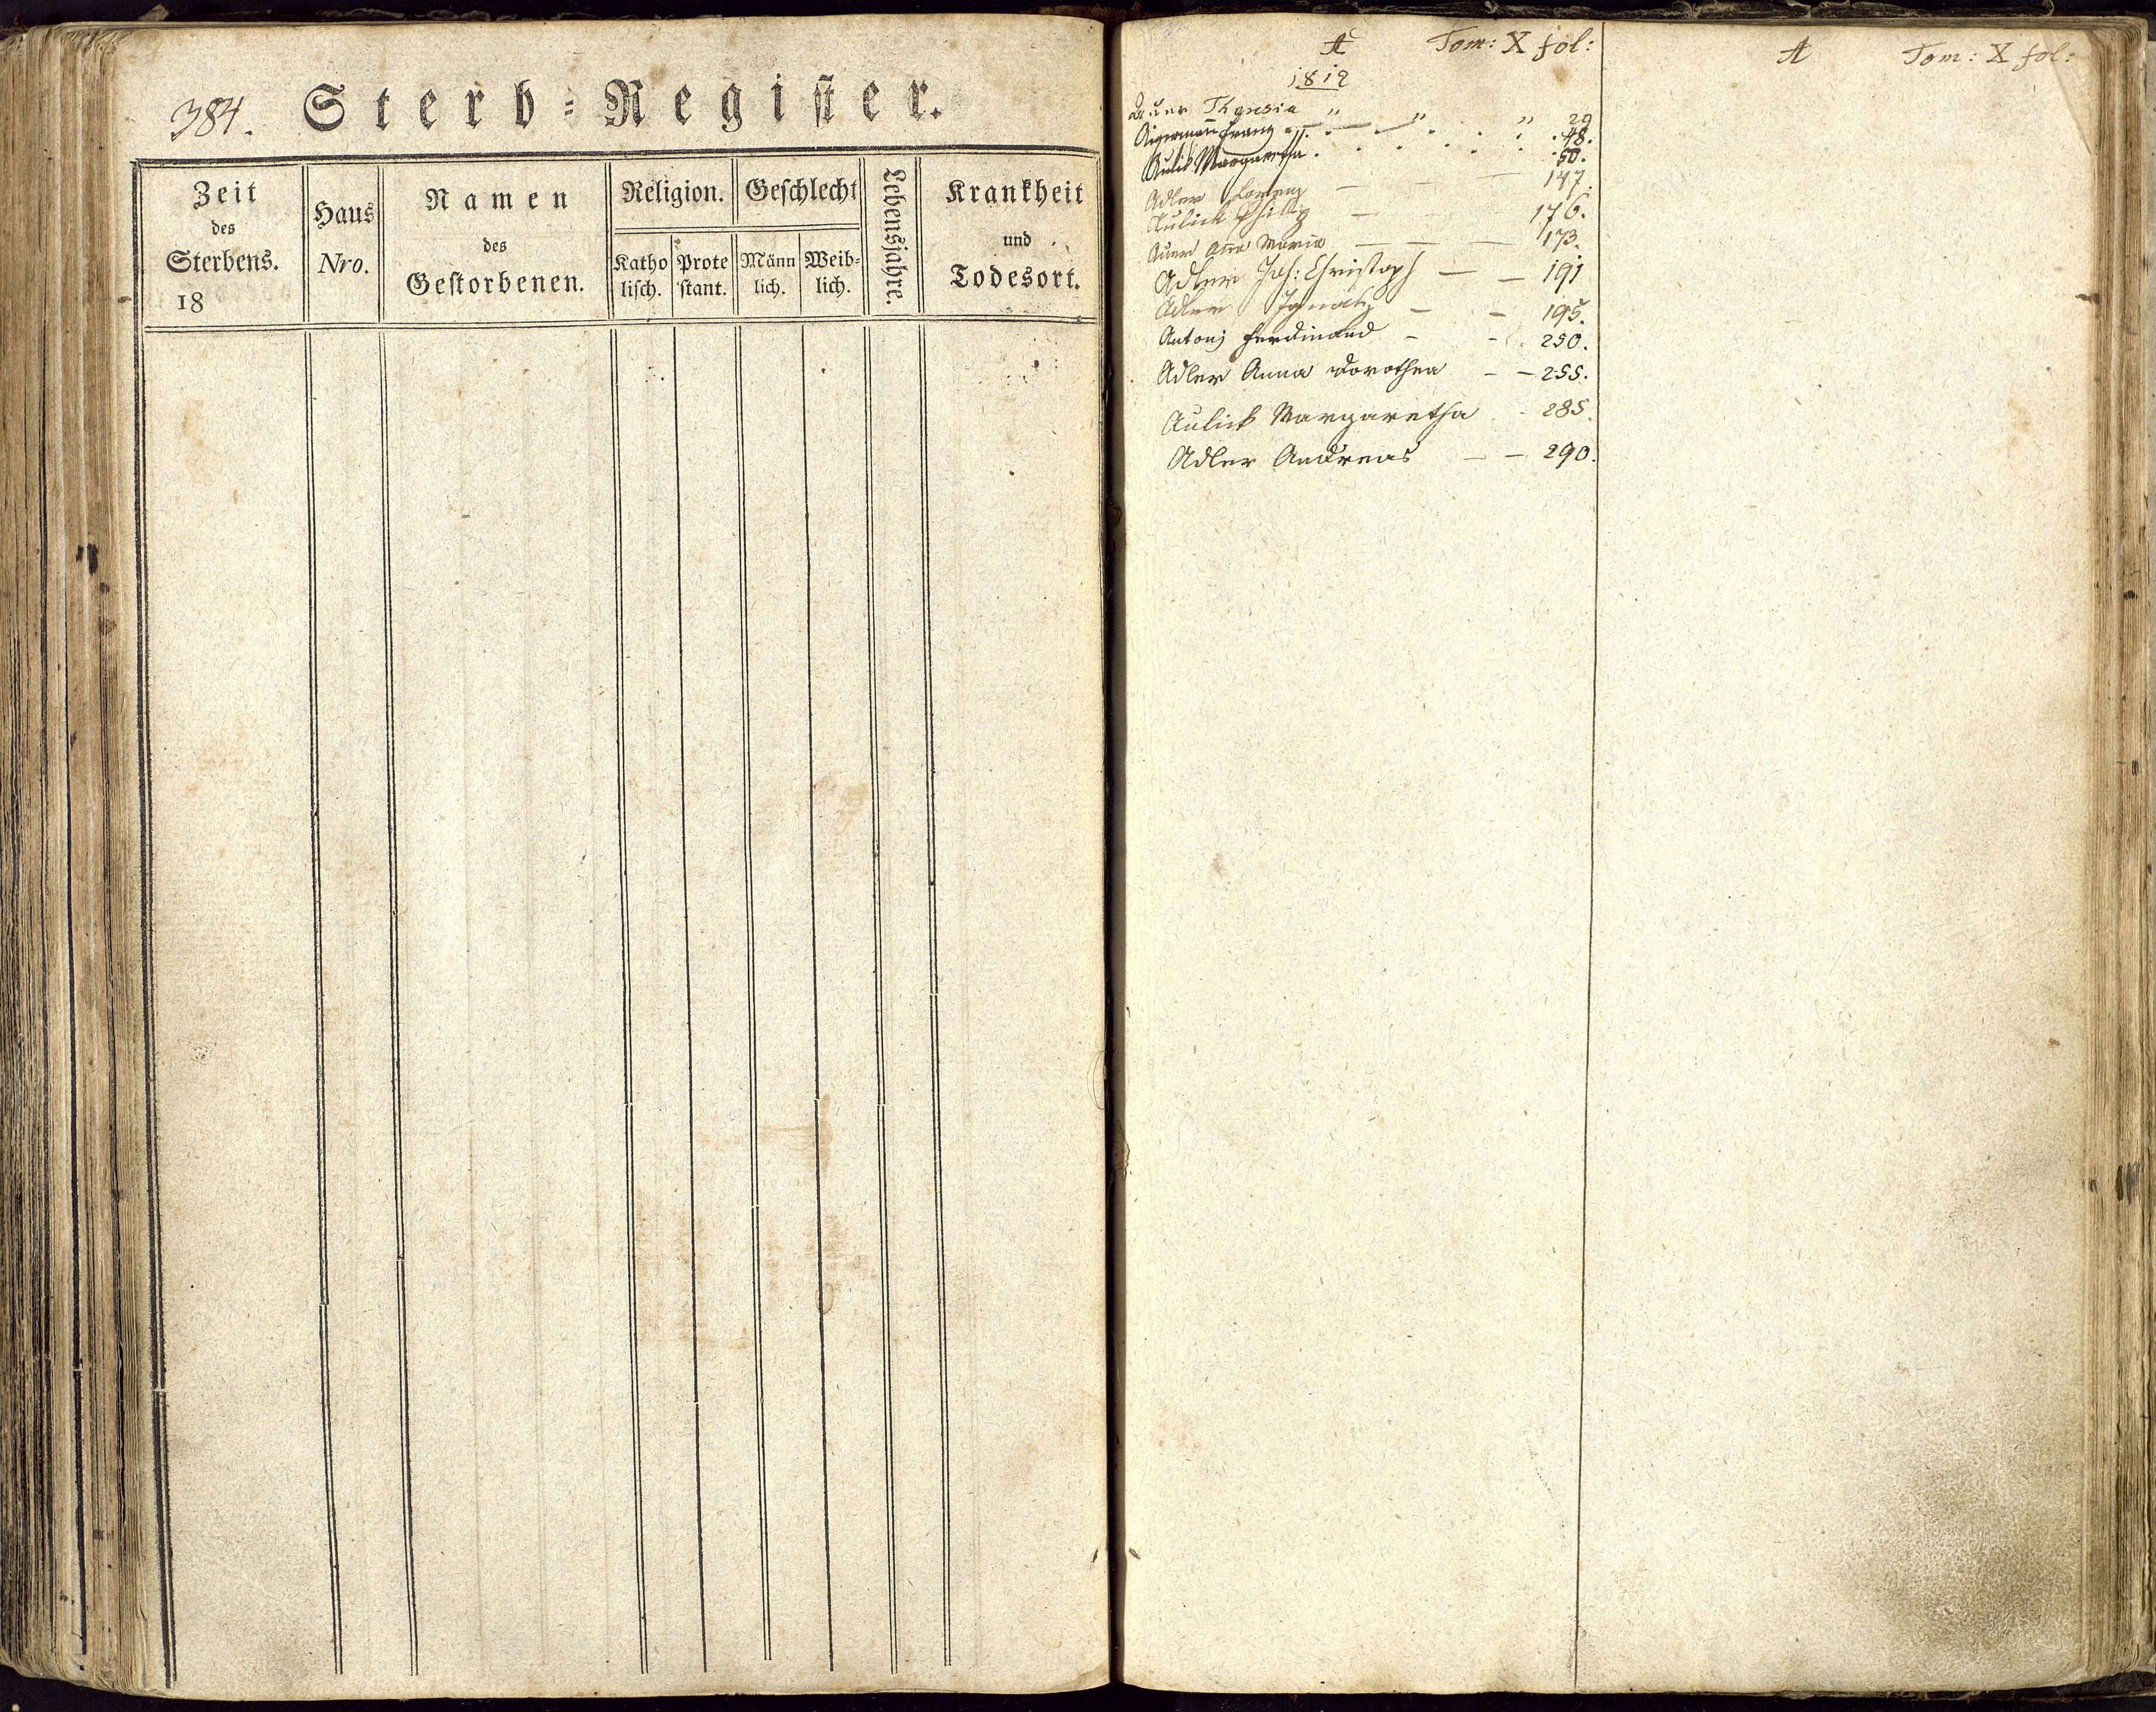 384. Sterb=Register.
Zeit
des
Sterbens.
18
Haus
Nro.
Namen
des
Gestorbenen.
Religion.
Katho
lisch.
Prote
stant.
Geschlecht
Männ
lich.
Weib=
lich.
Lebensjahre.
Krankheit
und
Todesort.
A Tom: X fol:
1812
Auer Theresia " " " 29
Franz 48.
Aulik Margaretha. 50.
Adler Lorenz — — 147.
Aulick Philip — 176.
Auer Ana Maria — — — 173.
Adler Joh: Christoph — — 191
Adler Ignatz — — 195.
Antonj Ferdinand - - 250.
Adler Anna Dorothea - — 255.
Aulick Margaretha - 285.
Adler Andreas — — 290.
A Tom: X fol: